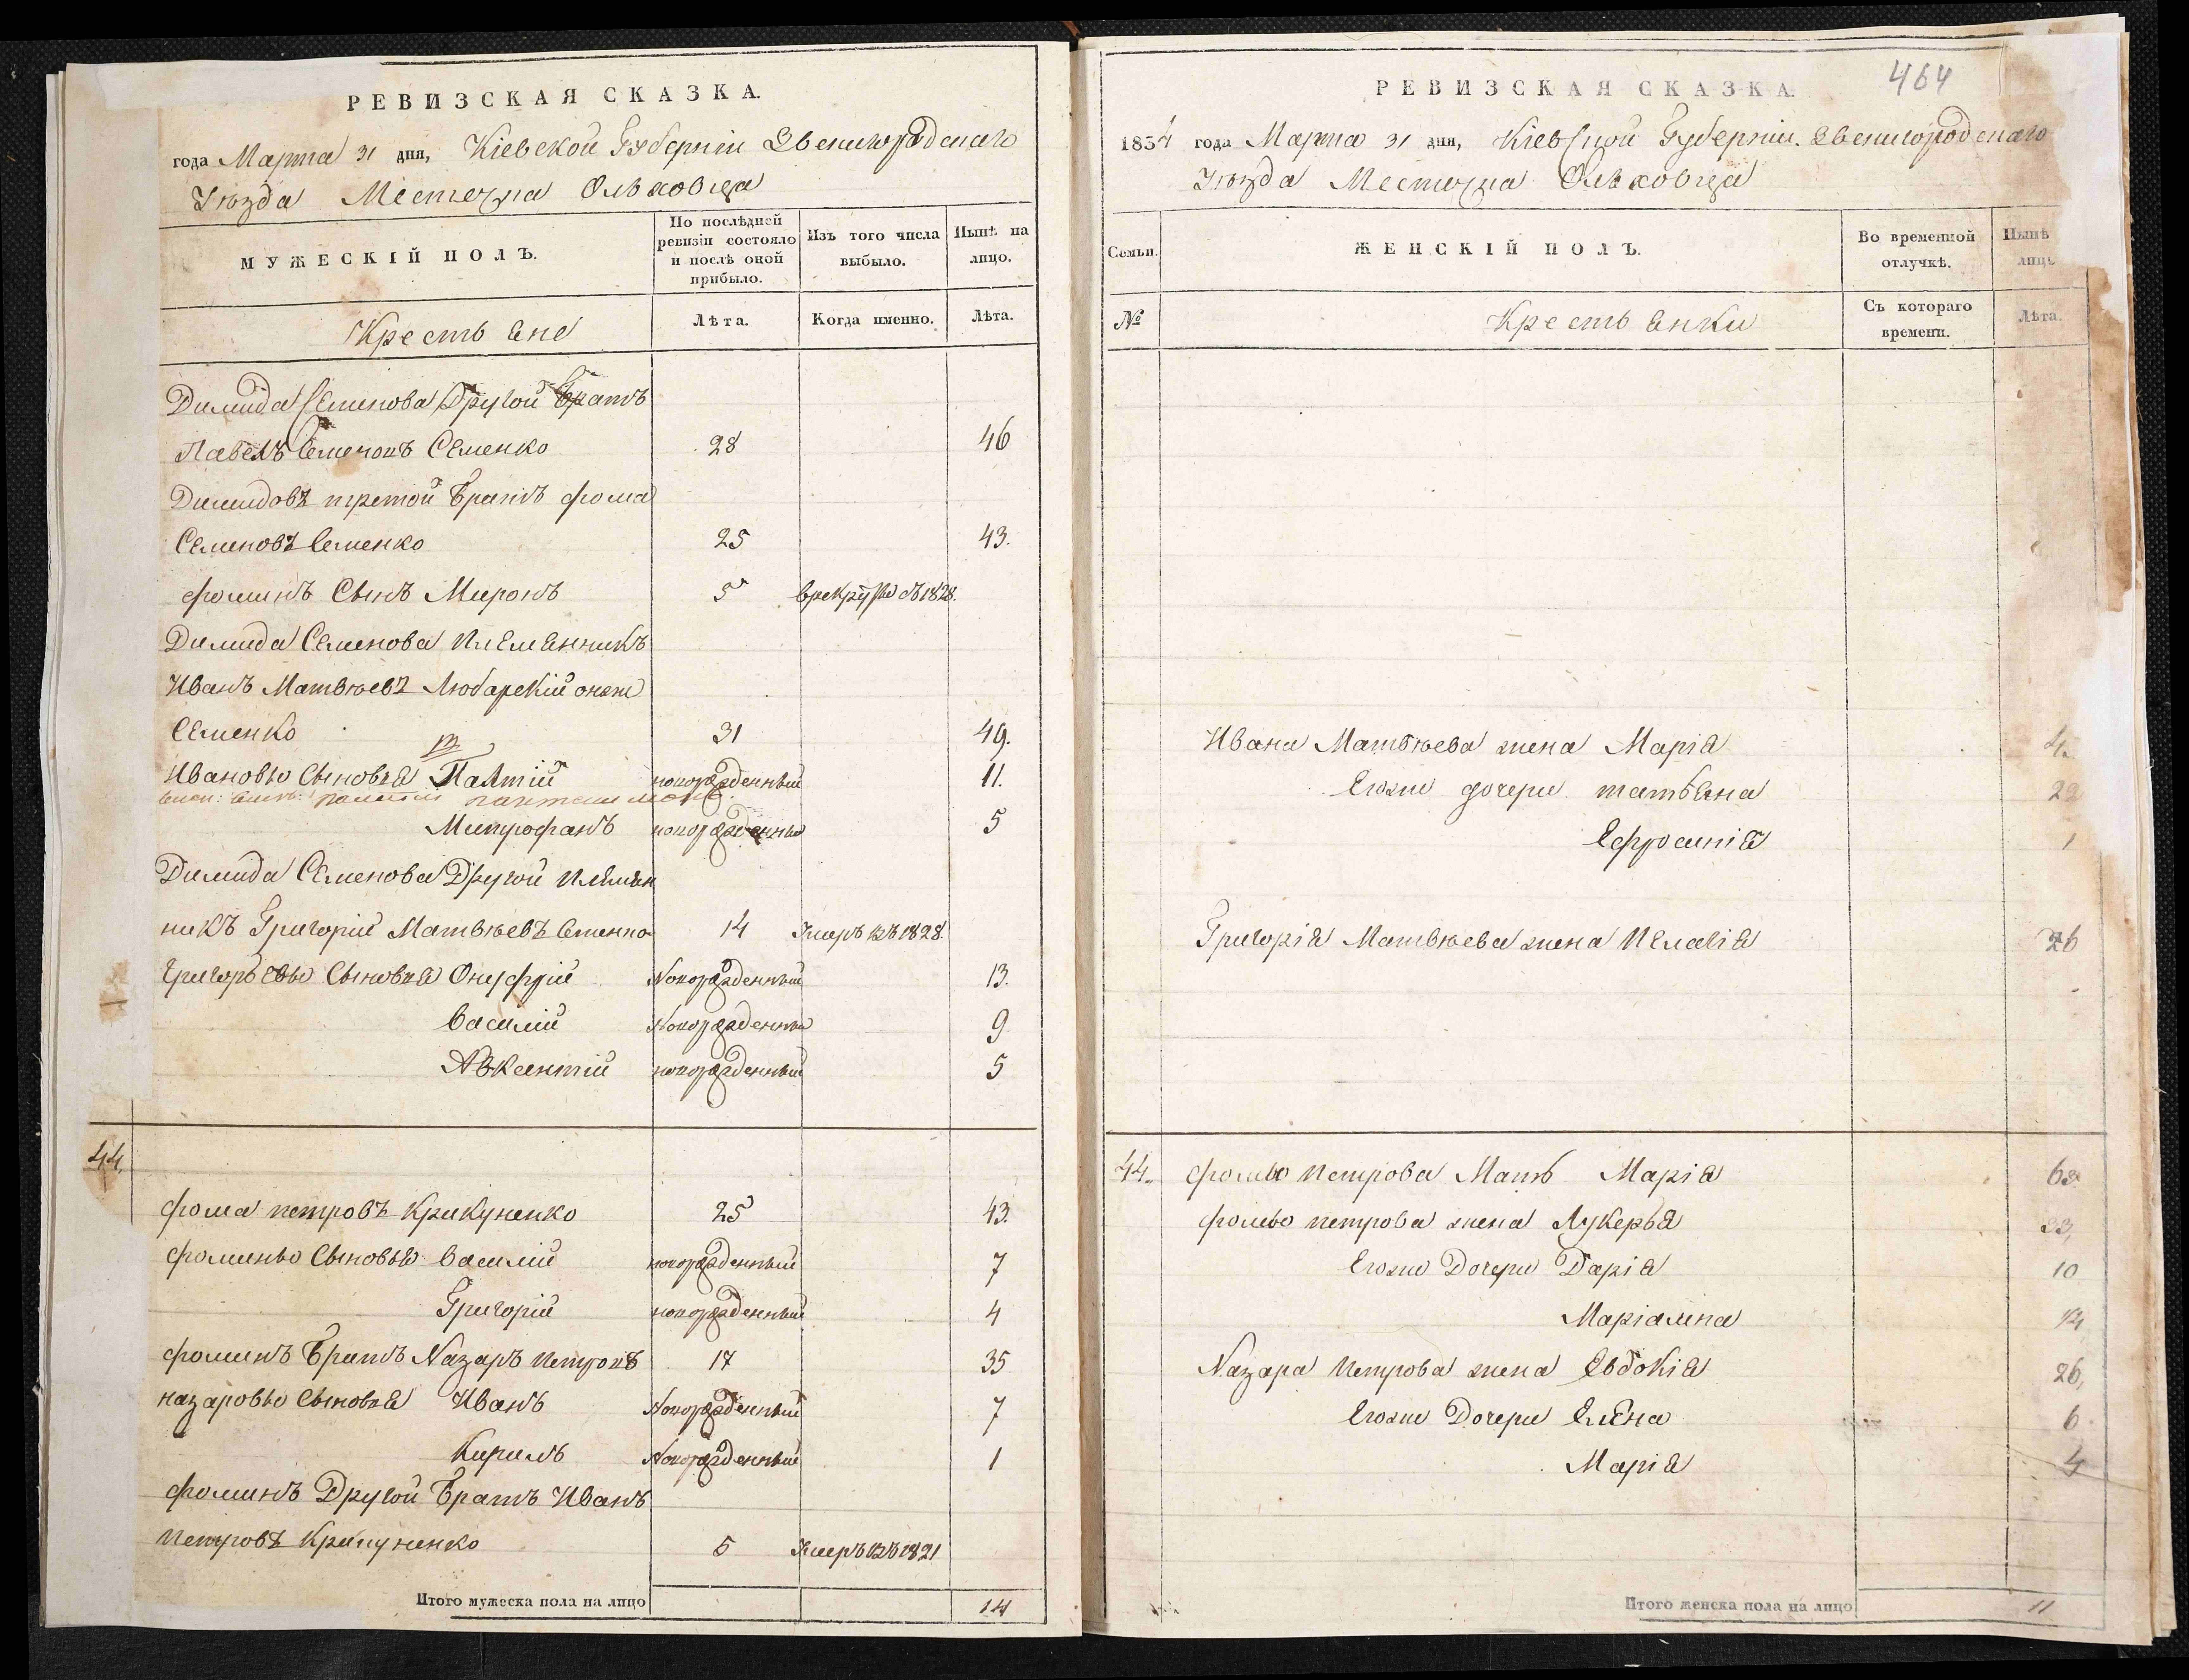 РЕВИЗСКАЯ СКАЗКА.
года Марта 31 дня, Кіевской Губерніи Звенигородскаго
Уѣзда Местечка Ольховца
МУЖЕСКІЙ ПОЛЪ.
По послѣдней ревизіи состояло и послѣ оной прибыло.
Изъ того числа выбыло.
Нынѣ на лицо.
Крестьяне
Лѣта.
Когда именно.
Лѣта.
Димида Семенова Другой Братъ
Павелъ Семеновъ Семенко 28 46
Димидовъ третой Братъ фома
Семеновъ Семенко 25 43.
фоминъ Сынъ Миронъ 5 1828.
Димида Семенова Племянникъ
Иванъ Матвѣевъ Любарскій онже
Семенко 31 49.
Ивановы Сыновья новорожденный 11.
Митрофанъ новорожденны 5
Димида Семенова Другой Племян
никъ Григорій Матвѣевъ Семенко 14 Умеръ въ 1828
Григорьевы Сыновья Онуфрій Новорожденный 13.
Василій Новорожденны 9
Авксентій новорожденный 5
44.
фома петровъ Крикуненко 25 43.
фомины Сыновья Василій новорожденный 7
Григорій новорожденный 4
фоминъ Братъ Назаръ Петровъ 17 35
назаровы Сыновья Иванъ Новорожденный 7
Кирилъ Новорожденный 1
фоминъ Другой Братъ Иванъ
Петровъ Крикуненко 5 Умеръ въ 1821
Итого мужеска пола на лицо 14
464
РЕВИЗСКАЯ СКАЗКА.
1834 года Марта 31 дня, Кіевской Губерніи. Звенигородскаго
Уѣзда Местечка Ольховца
Семьи.
ЖЕНСКІЙ ПОЛЪ.
Во временной отлучкѣ.
Нынѣ лицо
№
Крестьянки
Съ котораго времени.
Лѣта.
Ивана Матвѣева жена Марія
Егоже дочери татьяна 22
Ефросинія 1
Григорія Матвѣева жена Пелагія 36
44. фомы Петрова Мать Марія
фомы петрова жена Лукерья 33,
Егоже Дочери Дарія 10
Маріамна
Назара Петрова жена Евдокія 26,
Егоже Дочери Елена 6
Марія 4
Итого женска пола на лицо 11